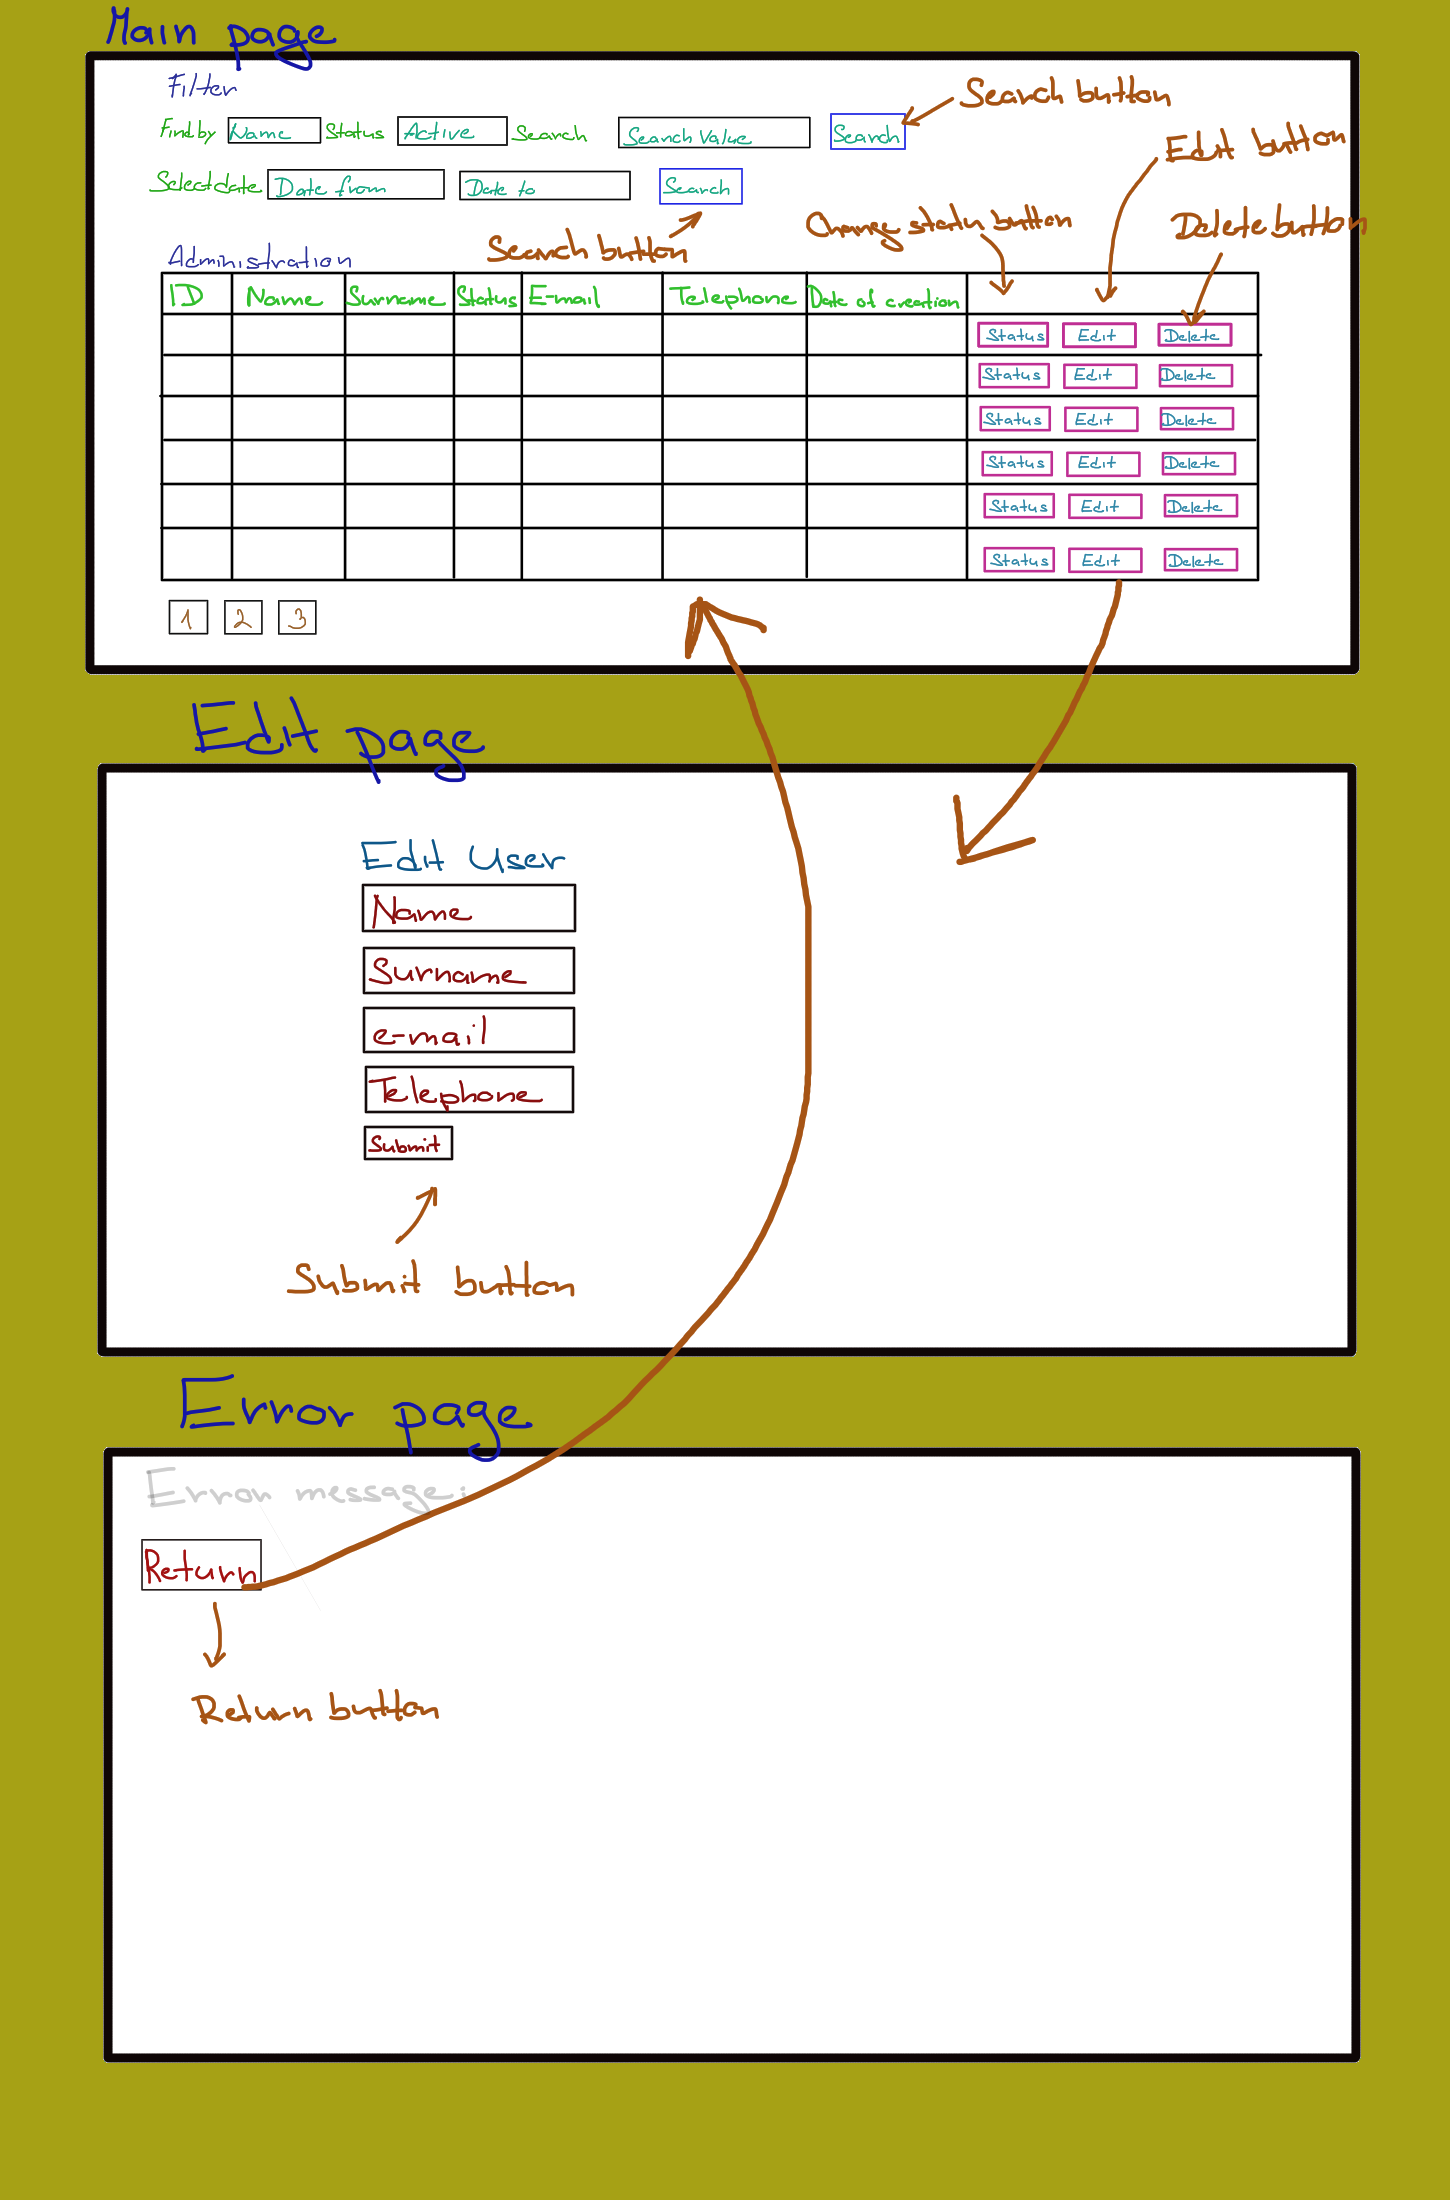 Main page
Filter
Search button
Find by Name Status Active Search Search Value Search
Edit button
Select date Date from Date to Search
Change status button
Delete button
Search button
Administration
ID Name Surname Status E-mail Telephone Date of creation
Status Edit Delete
Status Edit Delete
Status Edit Delete
Status Edit Delete
Status Edit Delete
Status Edit Delete
1 2 3
Edit page
Edit User
Name
Surname
e-mail
Telephone
Submit
Submit button
Error page
Error message:
Return
Return button